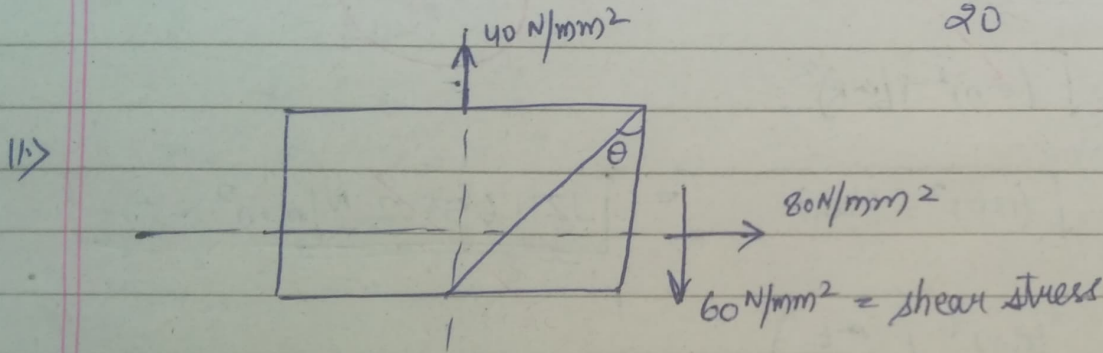 20
40 N/mm²
11.>
θ
80N/mm²
60 N/mm² = shear stress